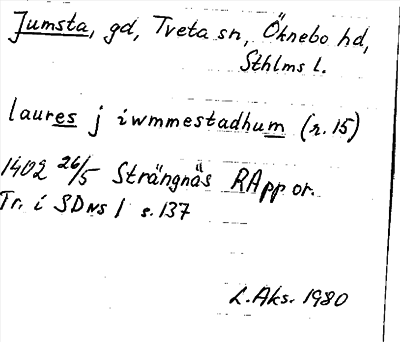 Jumsta, gd, Tveta sn, Öknebo hd,
Sthlms l.
laures j iwmmestadhum (r. 15)
1402 26/5 Strängnäs RApp or.
Tr. i SDns 1 s. 137
L. Aks. 1980